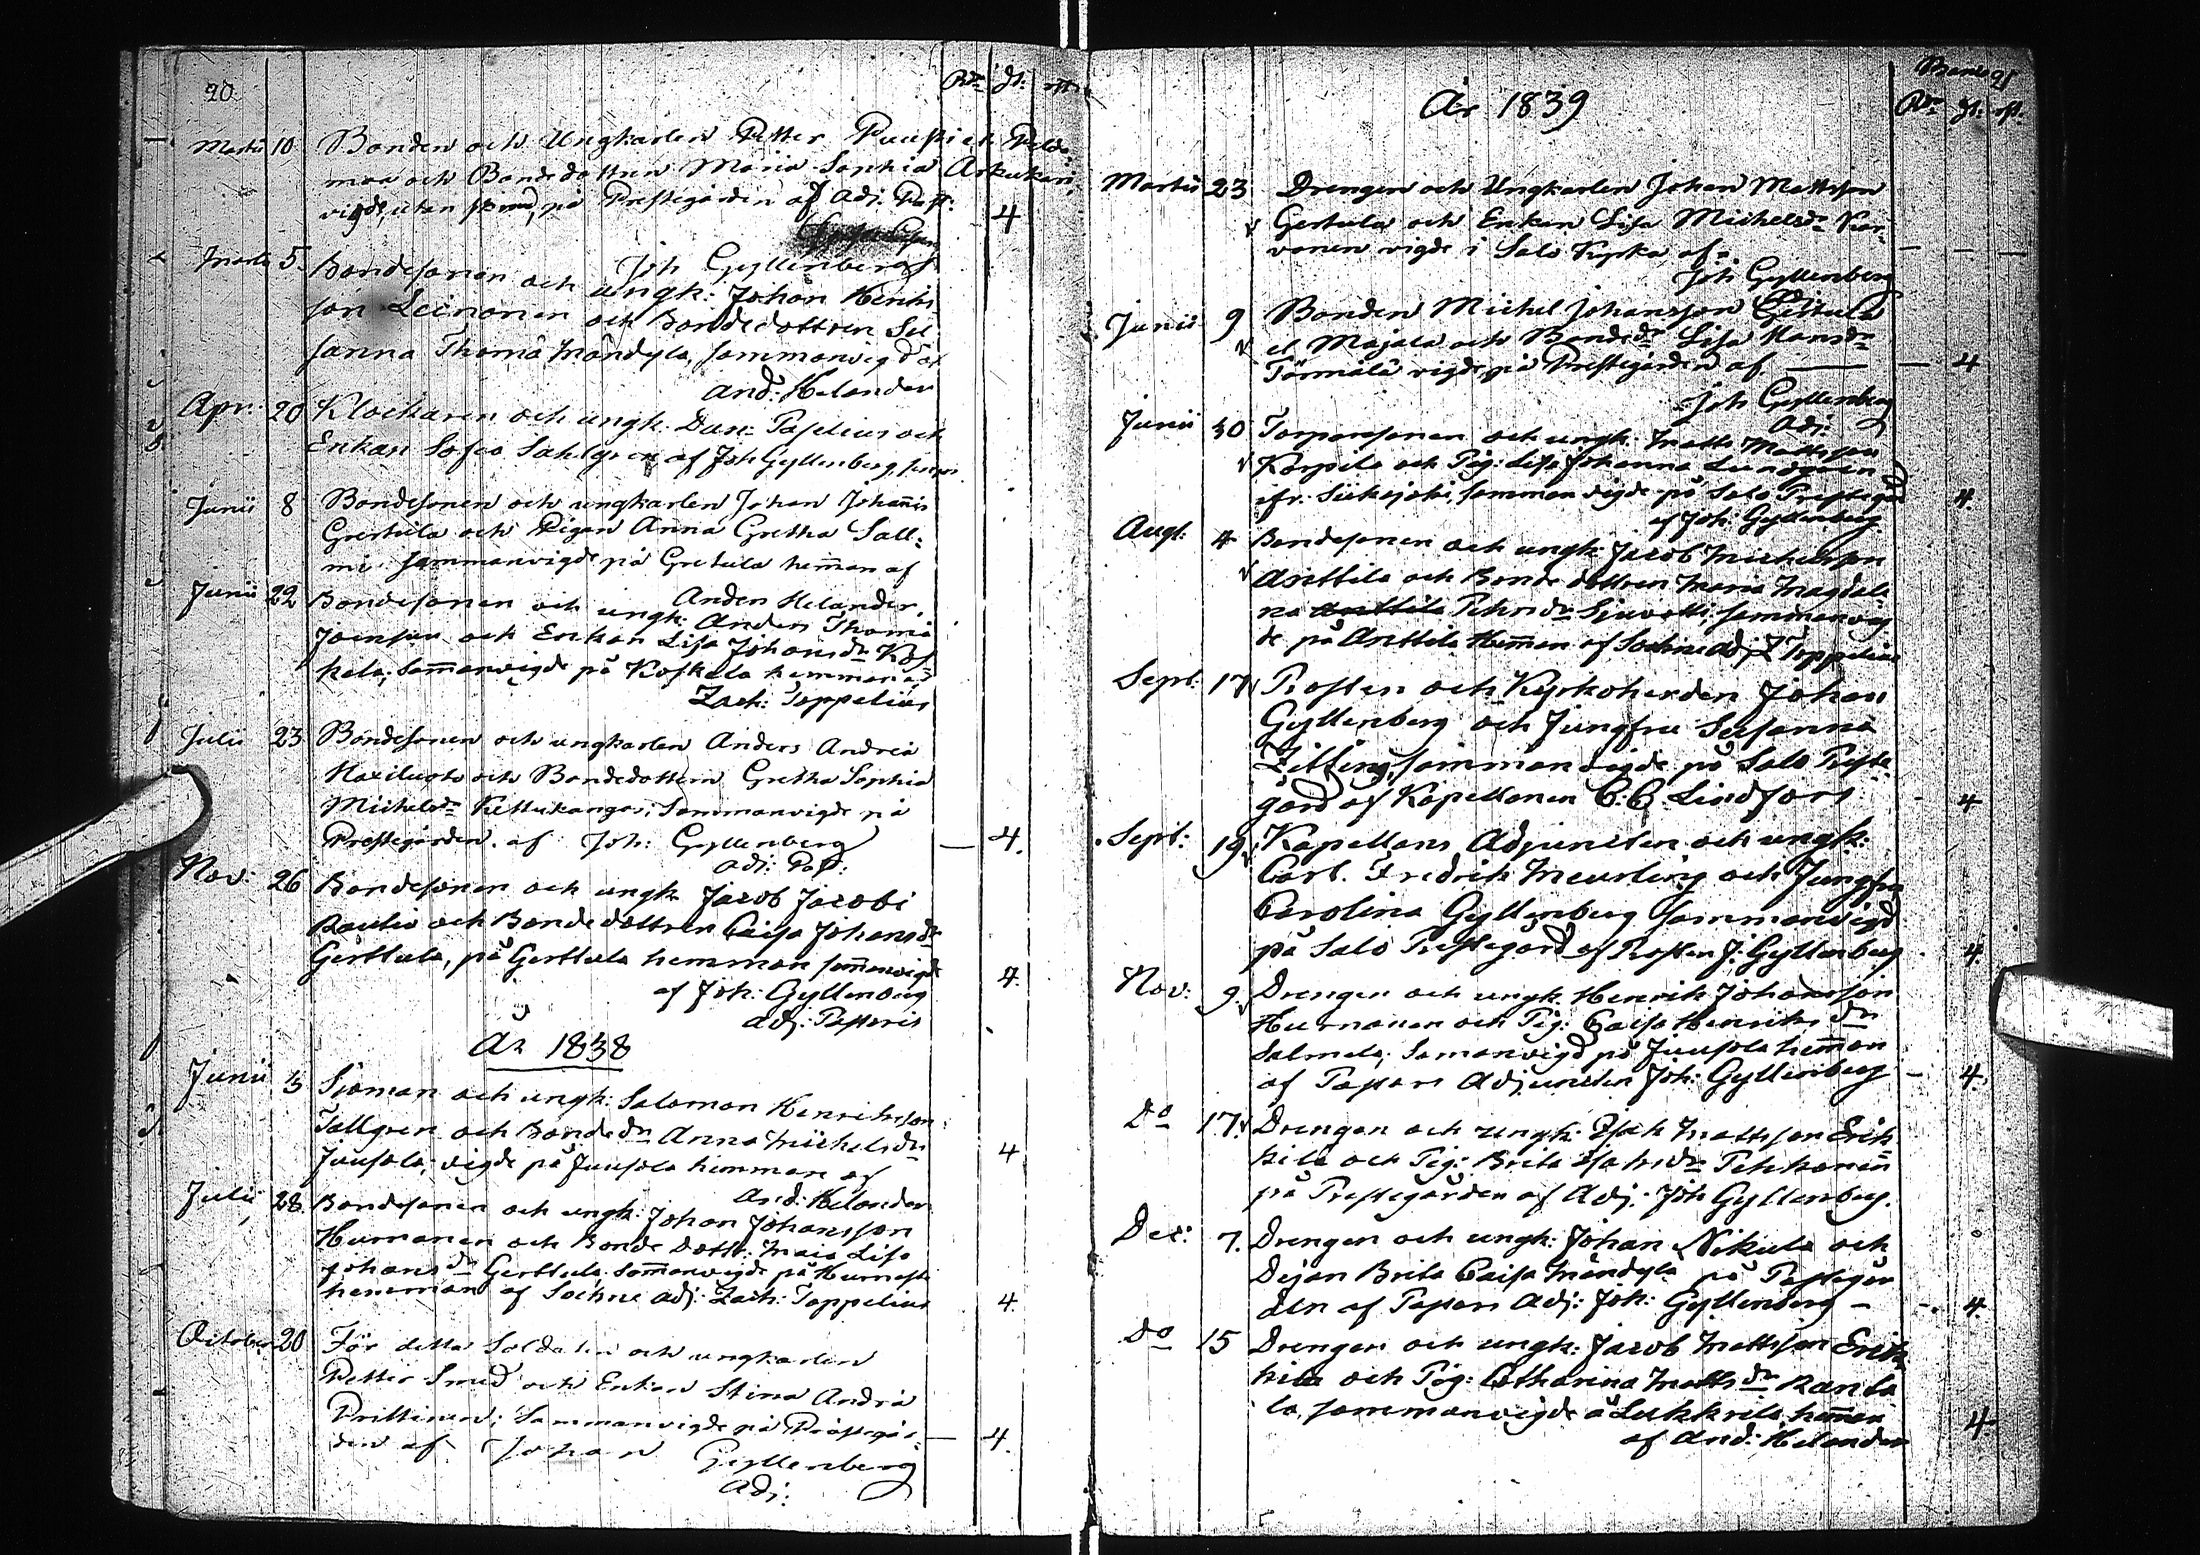 20
Rdr ſk: rſt.
Martii 10. Bonden och Ungkarlen Petter Puuskiet Pelde
maa och Bondedottren Maria Sophia Arkukari
vigde, utan, på Prestegården af Adj: Past: 4
Joh Gyllenberg
Martii 5. Bondesonen och ungk: Johan Henriks
son Leinonen och Bondedottren Su
sanna Thomä Mändylä, sammanvigd af
And: Helander
Apr: 20 Klockaren och ungk. Dan: Pazelius och
Enkan Sofia Sahlgren af Joh Gyllenberg
Junii 8 Bondesonen och ungkarlen Johan Johanis
Grertula och Pigan Anna Gretha Sall-
mi. sammanvigde på Gretula heman af
Anders Helander.
Junii 22 Bondesonen och ungk: Anders Thomä
Joensuu och Enkan Lisa Johansdr Kos-
kela, Samanvigde på Koskela hemman af
Zach: Toppelius
Julii 23 Bondesonen och ungkarlen Anders Andreä
Haxiluoto och Bondedottern Gretha Sophia
Michelsdr Kettukangas; Sammanvigde på
Prestegården. af Joh: Gyllenberg — 4.
Adj: Past:
Nov: 26 Bondesonen och ungk Jacob Jacobi
Rautio och Bondedottren Caisa Johansdr
Gerttula, på Gerttula hemman samanvigde 4.
af Joh: Gyllenberg
Adj: Pastoris
År 1838
Junii 3 Sjöman och ungk: Salomon Henriksson
Tallgren och Bondedr Anna Michelsdr
Juusola, vigde på Juusola hemman af 4
And: Helander
Julii 28. Bondesonen och ungk: Johan Johansson
Hurnanen och Bonde Dottr: Maja Lisa
Johansdr Gerttula. Samanvigde på Hurnasti
hemman af Sockne adj: Zach: Toppelius 4.
October 20 För detta Soldaten och ungkarlen
Petter Smed och Enkan Stina Andrä
Prittinen; Sammanvigde på Prästegår-
den af Johan Gyllenberg — 4.
Adj:
Banco 21
År 1839 Rdr ſk: rſt.
Martii 23 Drengen och Ungkarlen Johan Mattsson
Gertula och Enkan Lisa Michelsdr Kor-
vonen vigde i Salo Kyrka af — — —
Joh Gyllenberg
Junii 9 Bonden Michel Johansson Gertula
el Majala och Bondedr Lisa Hansdr
Törmälä vigde på Prestegården af — — 4
Joh Gyllenberg
Adj:
Junii 30 Torparesonen och ungk. Matts Mattsson
Korpila och Pig: Lisa Johanna Lundgren
ifr. Siikajoki, samman vigde på Salo Prestegård 4.
af Joh: Gyllenberg.
Augt. 4 Bondesonen och ungk: Jacob Michelsson
Anttila och Bonde dottren Maria Magdale
na Anttila Petersdr Sjuvatti; sammanvig
de på Anttila Heman af Sockne adj Z Toppelius
Sept. 17 Prosten och Kyrkoherden Johan
Gyllenberg och Jungfru Susanna
Zitting, samman vigde på Salo Preste-
gård af Kapellanen C: G. Lindfors - 4
Sept: 19. Kapellans Adjuncten och ungk:
Carl. Fredrik Meurling och Jungfru
Carolina Gyllenberg sammanvigd
på Salo Prestegård af Prosten J: Gyllenberg - 4.
Nov: 9. Drengen och ungk. Henrik Johansson
Hurnanen och Pig: Caisa Henriksdr
Salmela, Samanvigd på Juusola heman
af Pastors Adjuncten Joh: Gyllenberg - 4.
Do 17. Drengen och ungk: Isak Mattsson Erik
kila och Pig: Brita Isaksdr Pehkonen
på Prestegården af Adj: Joh Gyllenberg.
Dec: 7. Drengen och ungk: Johan Nikula och
Dejan Brita Caisa Mändylä på Prestegår
den af Pastors Adj: Joh: Gyllenberg - -. 4.
Do 15 Drengen och ungk: Jacob Mattsson Erik
kila och Pig: Catharina Mattsdr Ranta
la, sammanvigde å Lukkrela heman 4.
af And: Helander